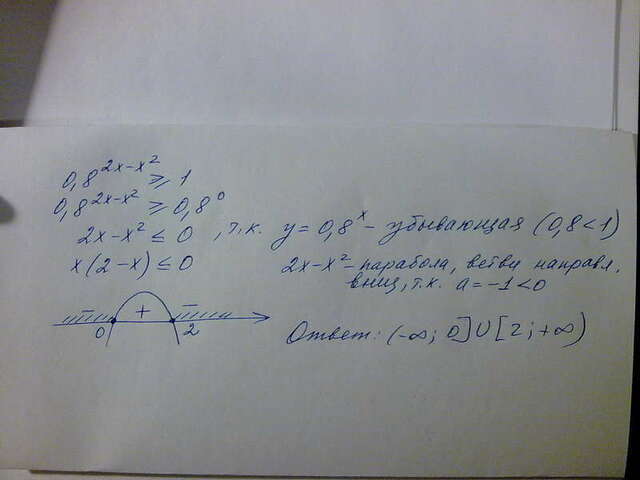 0,8^{2x-x^2} ⩾ 1
0,8^{2x-x^2} ⩾ 0,8^0
2x-x^2 ≤ 0 , т.к. y = 0,8^x - убывающая (0,8<1)
x(2-x) ≤ 0 2x-x^2 - парабола, ветви направл.
вниз, т.к. a = -1 < 0
- + -
0 2
Ответ: (-∞; 0] ∪ [2; +∞)